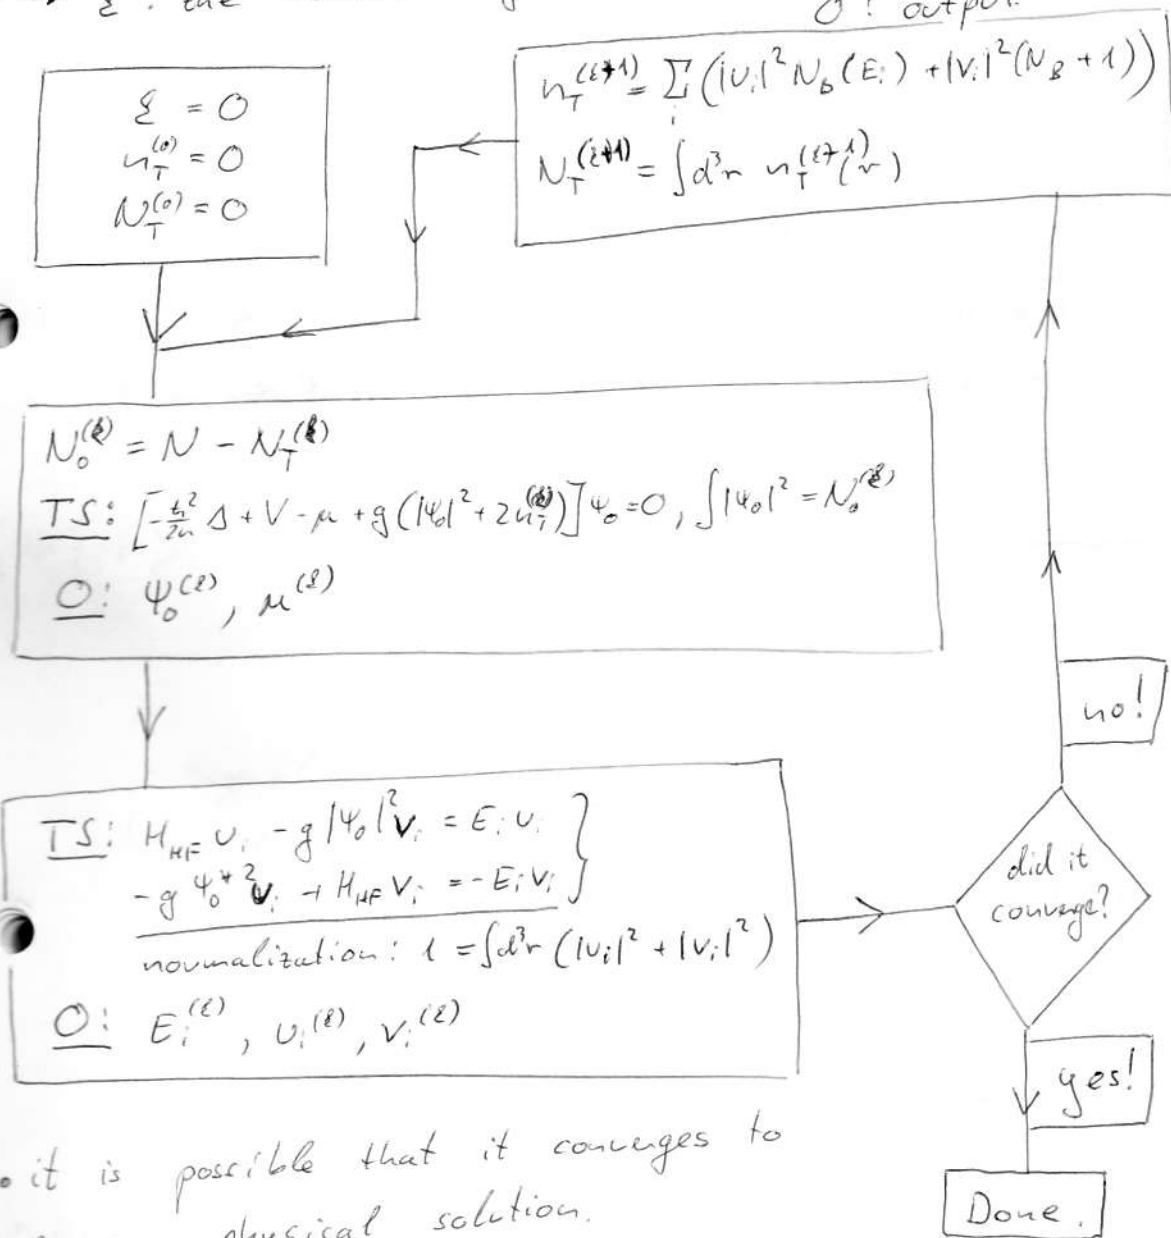 ξ : the
O : output.
ξ = 0
n_T^(0) = 0
N_T^(0) = 0
n_T^(ξ+1) = Σ_i (|u_i|^2 N_B(E_i) + |v_i|^2 (N_B + 1))
N_T^(ξ+1) = ∫d^3r n_T^(ξ+1)(r)
N_0^(ξ) = N - N_T^(ξ)
TS: [-ħ^2/2m Δ + V - μ + g(|ψ_0|^2 + 2n_T^(ξ))]ψ_0 = 0, ∫|ψ_0|^2 = N_0^(ξ)
O: ψ_0^(ξ), μ^(ξ)
no!
TS: H_HF u_i - g|ψ_0|^2 v_i = E_i u_i }
-g ψ_0^*2 u_i + H_HF v_i = -E_i v_i
normalization: 1 = ∫d^3r (|u_i|^2 + |v_i|^2)
O: E_i^(ξ), u_i^(ξ), v_i^(ξ)
did it
converge?
yes!
Done.
• it is possible that it converges to
physical solution.